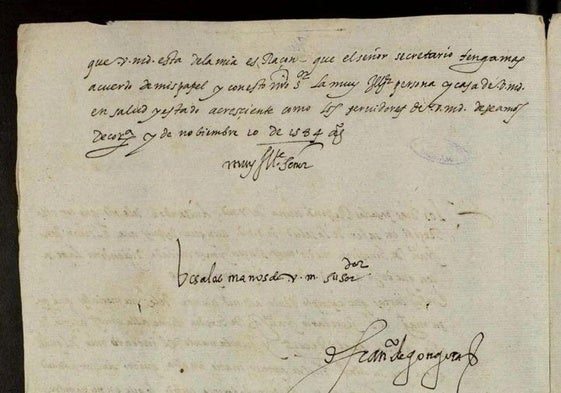 que v.md. esta de la mia es Raçon que el señor secretario tenga mas
acuerdo de mi papel y con esto nro sr. la muy Ille persona y casa de v.md.
en salud y estado acresciente como los servidores de v.md. deseamos
De cora y de noviembre 10 de 1584 as
muy Ille señor
besa las manos de v. m. su serdor
don franco de gongora